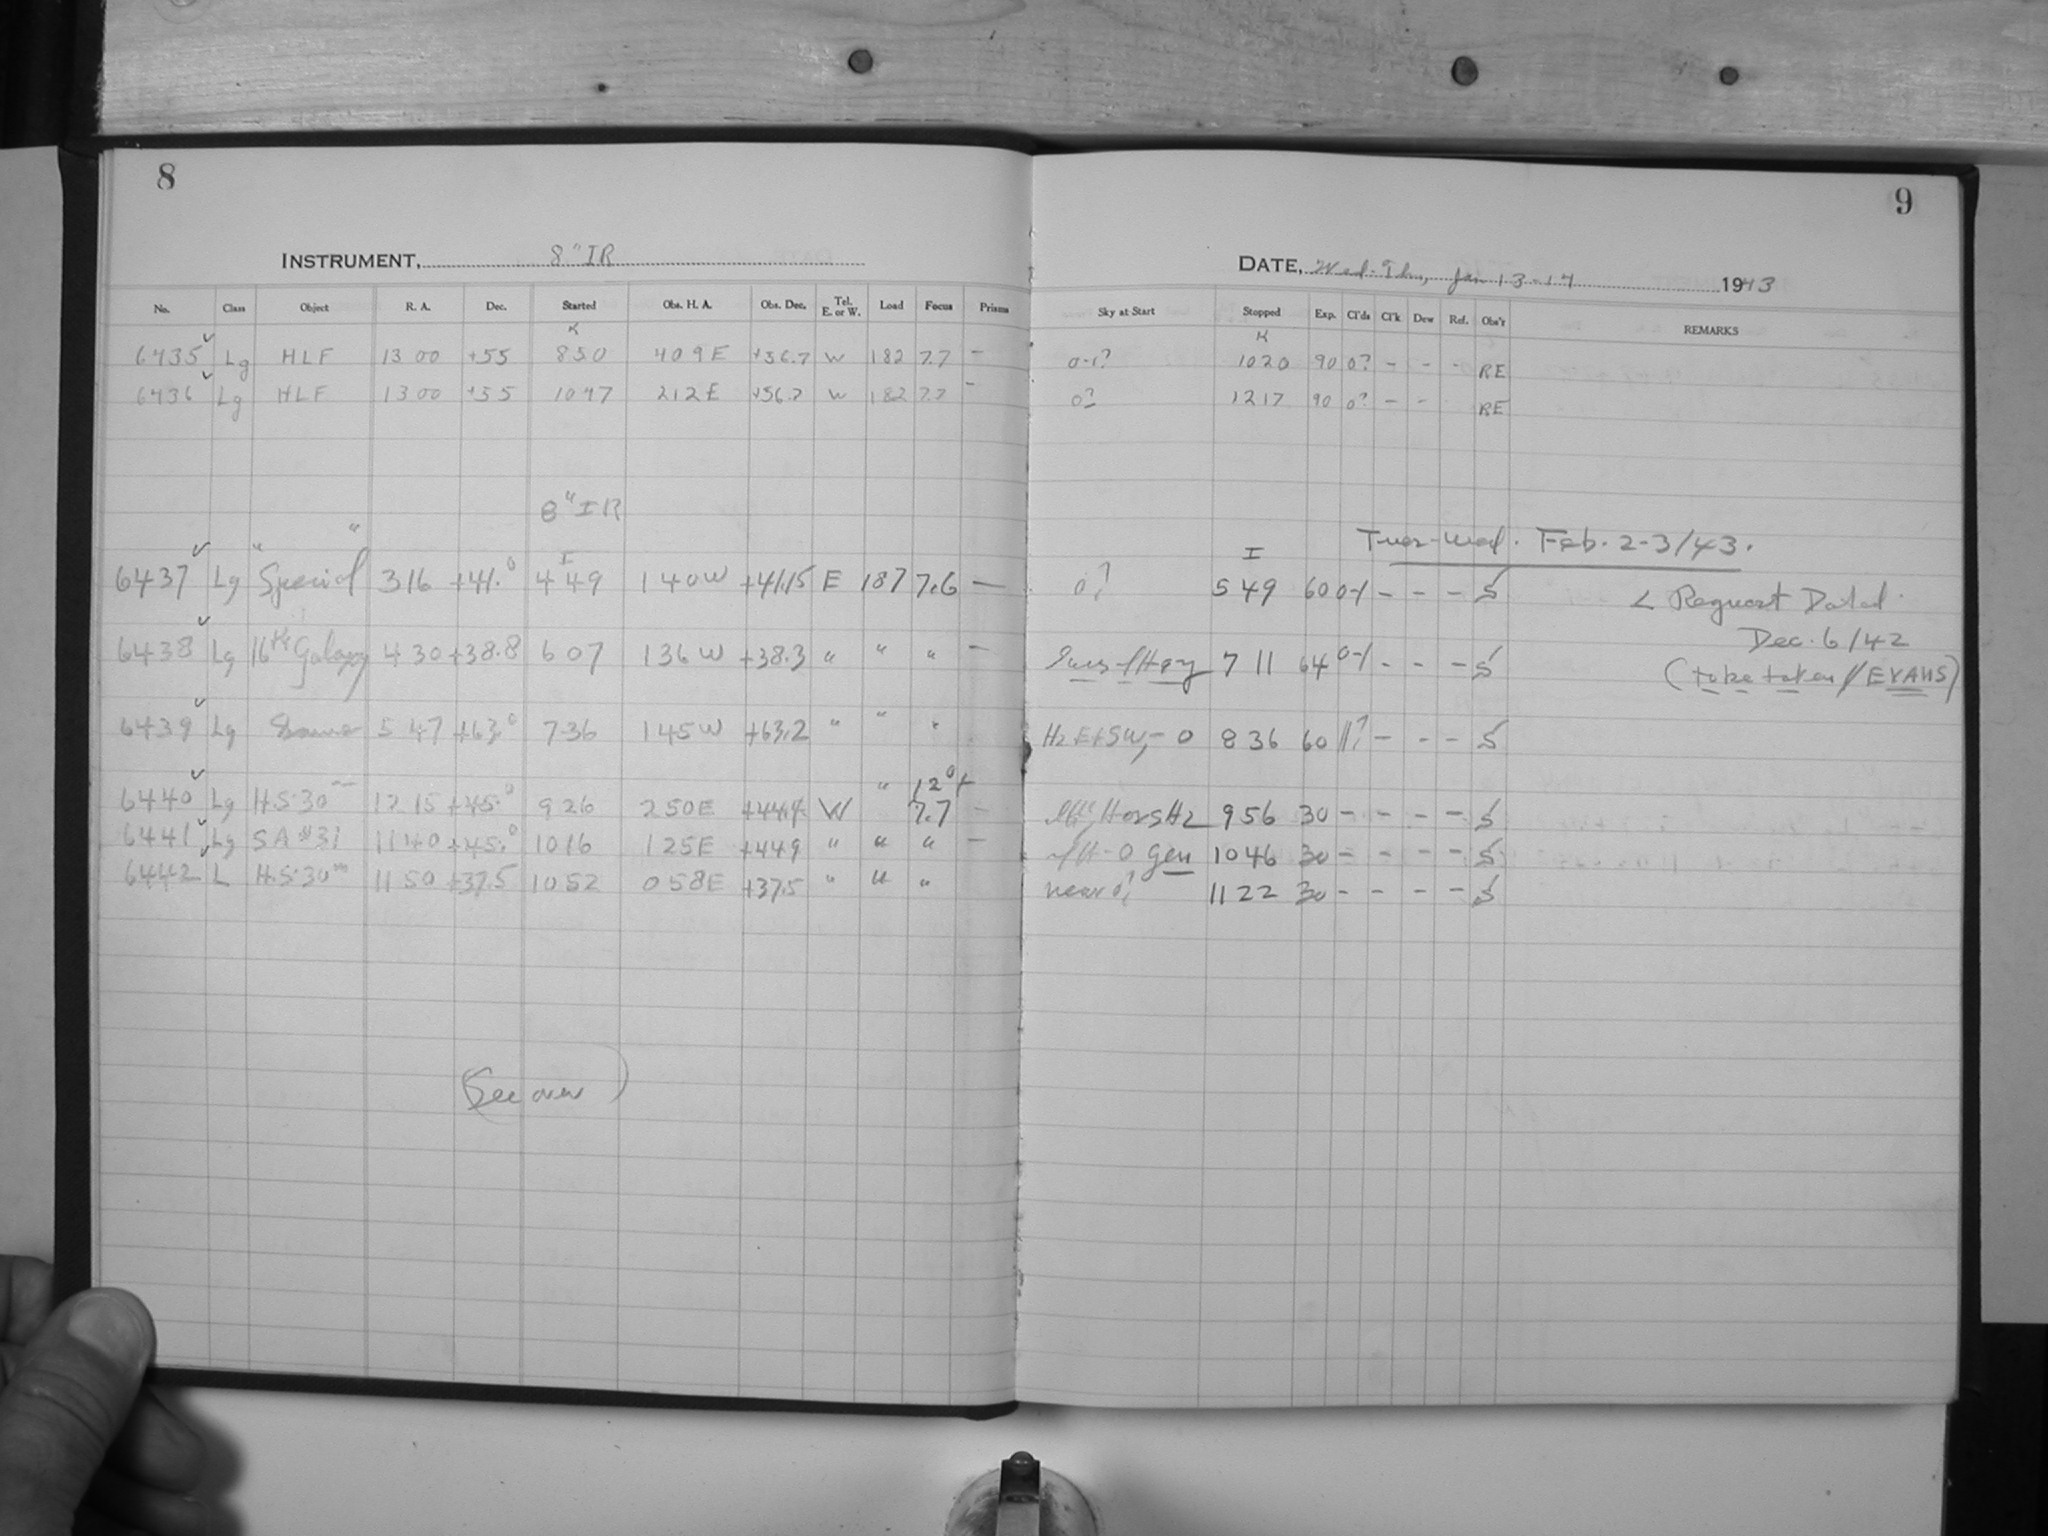 8
INSTRUMENT, 8" IR
No. Class Object R. A. Dec. Started Obs. H. A. Obs. Dec. Tel. E. or W. Load Focus Prisms
K
6435 ✓ Lg HLF 13 00 +55 850 409E +56.7 W 182 7.7 -
6436 ✓ Lg HLF 13 00 +55 1047 212E +56.7 W 182 7.7 -
8" IR
I
6437 ✓ Lg "Special" 3 16 +41.° 4 49 1 40W +41.15 E 187 7.6 -
6438 ✓ Lg 16th Galaxy 4 30 +38.8 6 07 1 36W +38.3 " " " -
6439 ✓ Lg Same 5 47 +63.° 7 36 1 45W +63.2 " " "
12°+
6440 ✓ Lg H.S. 30m 12 15 +45.° 9 26 2 50E +44.4 W " 7.7 -
6441 ✓ Lg SA #31 11 40 +45.° 10 16 1 25E +44.9 " " " -
6442 ✓ L H.S. 30m 11 50 +37.5 10 52 0 58E +37.5 " " "
(See over)
9
DATE, Wed-Thu, Jan 13-14 1943
Sky at Start Stopped Exp. Cl'ds Cl'k Dew Ref. Obs'r REMARKS
K
0-1? 1020 90 0? - - - RE
0? 1217 90 0? - - RE
Tues-Wed. Feb. 2-3/43.
I
0? 5 49 60 0-1 - - - S < Request Dated
Dec. 6/42
7 11 64 0-1 - - - S (to be taken / EVANS)
Hz E+SW, - 0 8 36 60 1? - - - S
Hz 9 56 30 - - - - S
- 0 gen 10 46 30 - - - - S
near 0? 11 22 30 - - - - S